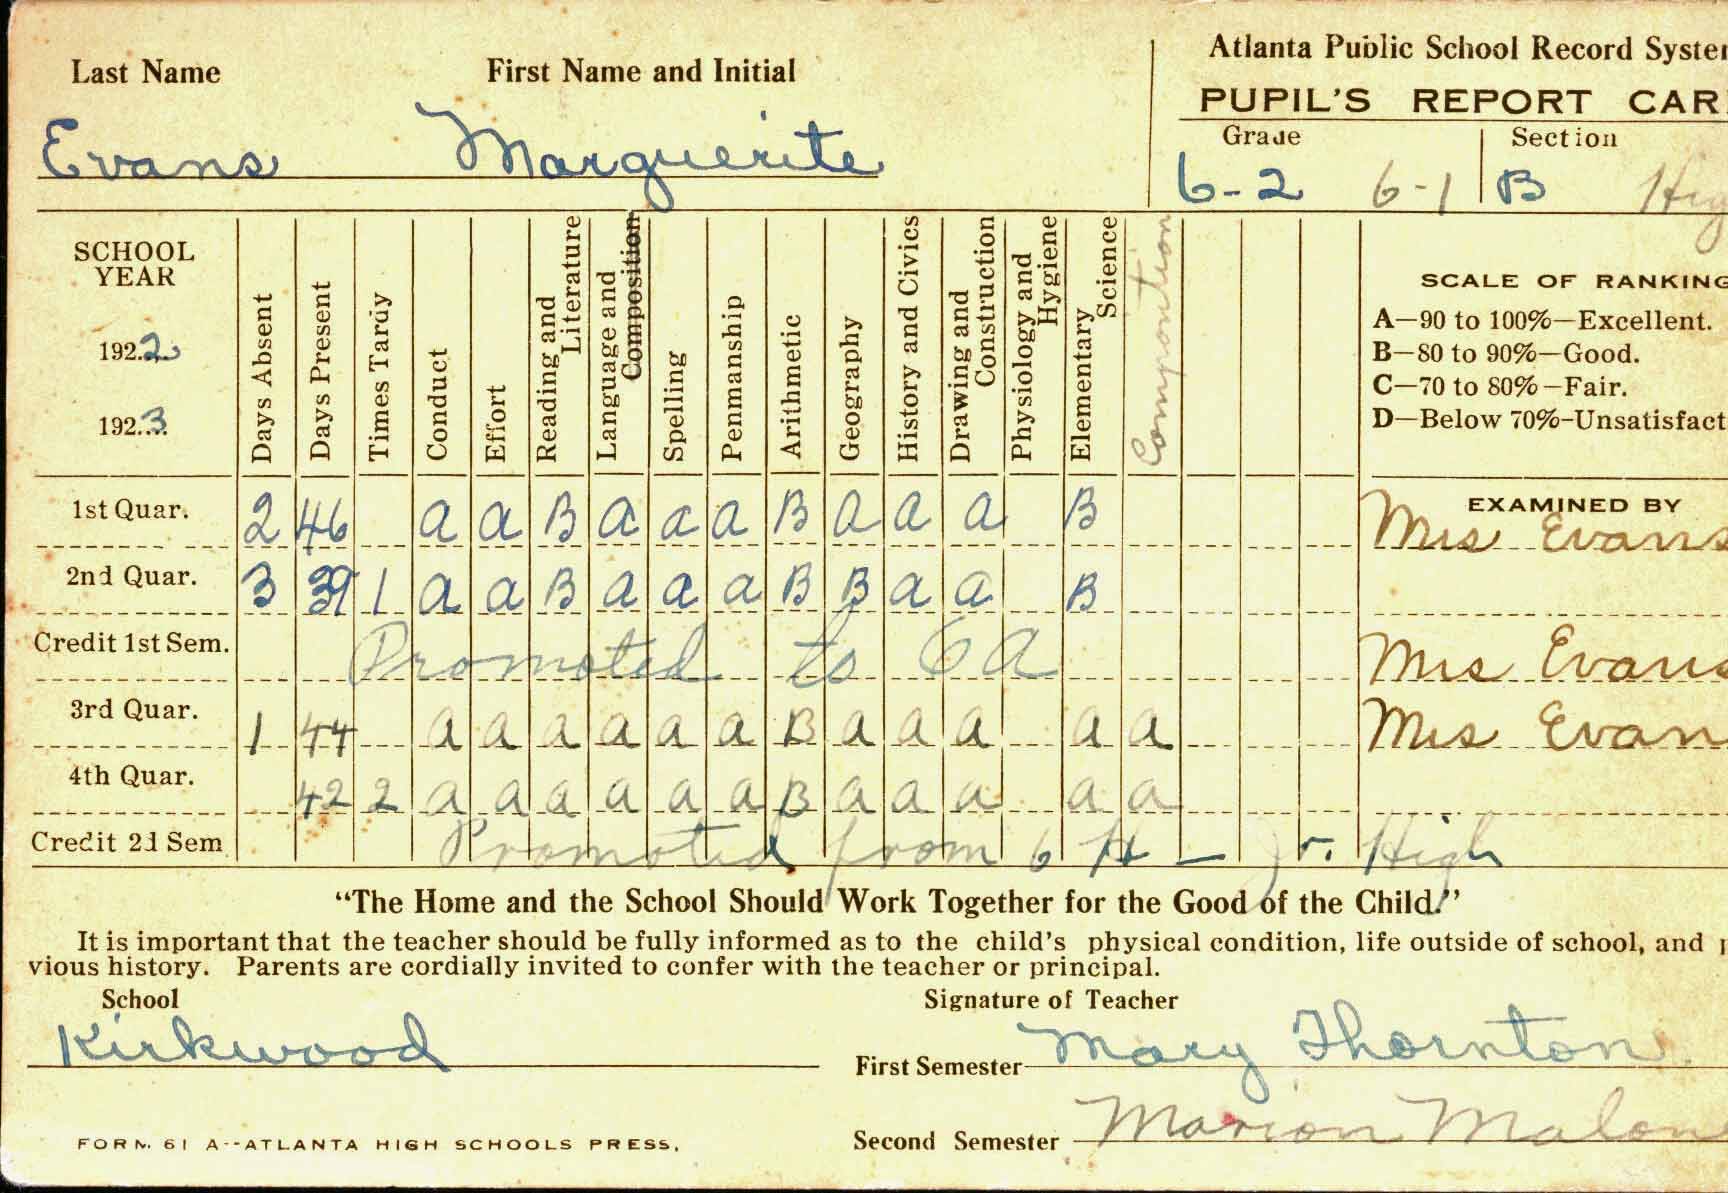 Last Name First Name and Initial
Evans Marguerite
Atlanta Public School Record System
PUPIL'S REPORT CAR
Grade Section
6-2 6-1 B Hig
SCHOOL YEAR
1922
1923
Days Absent
Days Present
Times Tardy
Conduct
Effort
Reading and Literature
Language and Composition
Spelling
Penmanship
Arithmetic
Geography
History and Civics
Drawing and Construction
Physiology and Hygiene
Elementary Science
Composition
SCALE OF RANKING
A—90 to 100%—Excellent.
B—80 to 90%—Good.
C—70 to 80%—Fair.
D—Below 70%-Unsatisfact
EXAMINED BY
1st Quar. 2 46 a a B a a a B a a a B Mrs Evans
2nd Quar. 3 39 1 a a B a a a B B a a B
Credit 1st Sem. Promoted to 6A Mrs Evans
3rd Quar. 1 44 a a a a a a B a a a a a Mrs Evan
4th Quar. 42 2 a a a a a a B a a a a a
Credit 2d Sem Promoted from 6 H - Jr. High
"The Home and the School Should Work Together for the Good of the Child."
It is important that the teacher should be fully informed as to the child's physical condition, life outside of school, and p
vious history. Parents are cordially invited to confer with the teacher or principal.
School Signature of Teacher
Kirkwood
First Semester Mary Thornton
Second Semester Marion Malone
FORM 61 A--ATLANTA HIGH SCHOOLS PRESS.